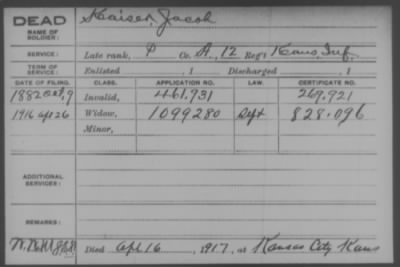 DEAD
NAME OF SOLDIER:
Kaiser, Jacob
SERVICE:
Late rank, P Co. A, 12 Reg't Kans. Inf.
TERM OF SERVICE:
Enlisted , 1 Discharged , 1
DATE OF FILING. CLASS. APPLICATION NO. LAW. CERTIFICATE NO.
1882 Oct. 9 Invalid, 461.731 269.921
1916 Apl 26 Widow, 1099280 Sept 828-096
Minor,
ADDITIONAL SERVICES:
REMARKS:
Died Apl 16, 1917, at Kansas City Kans